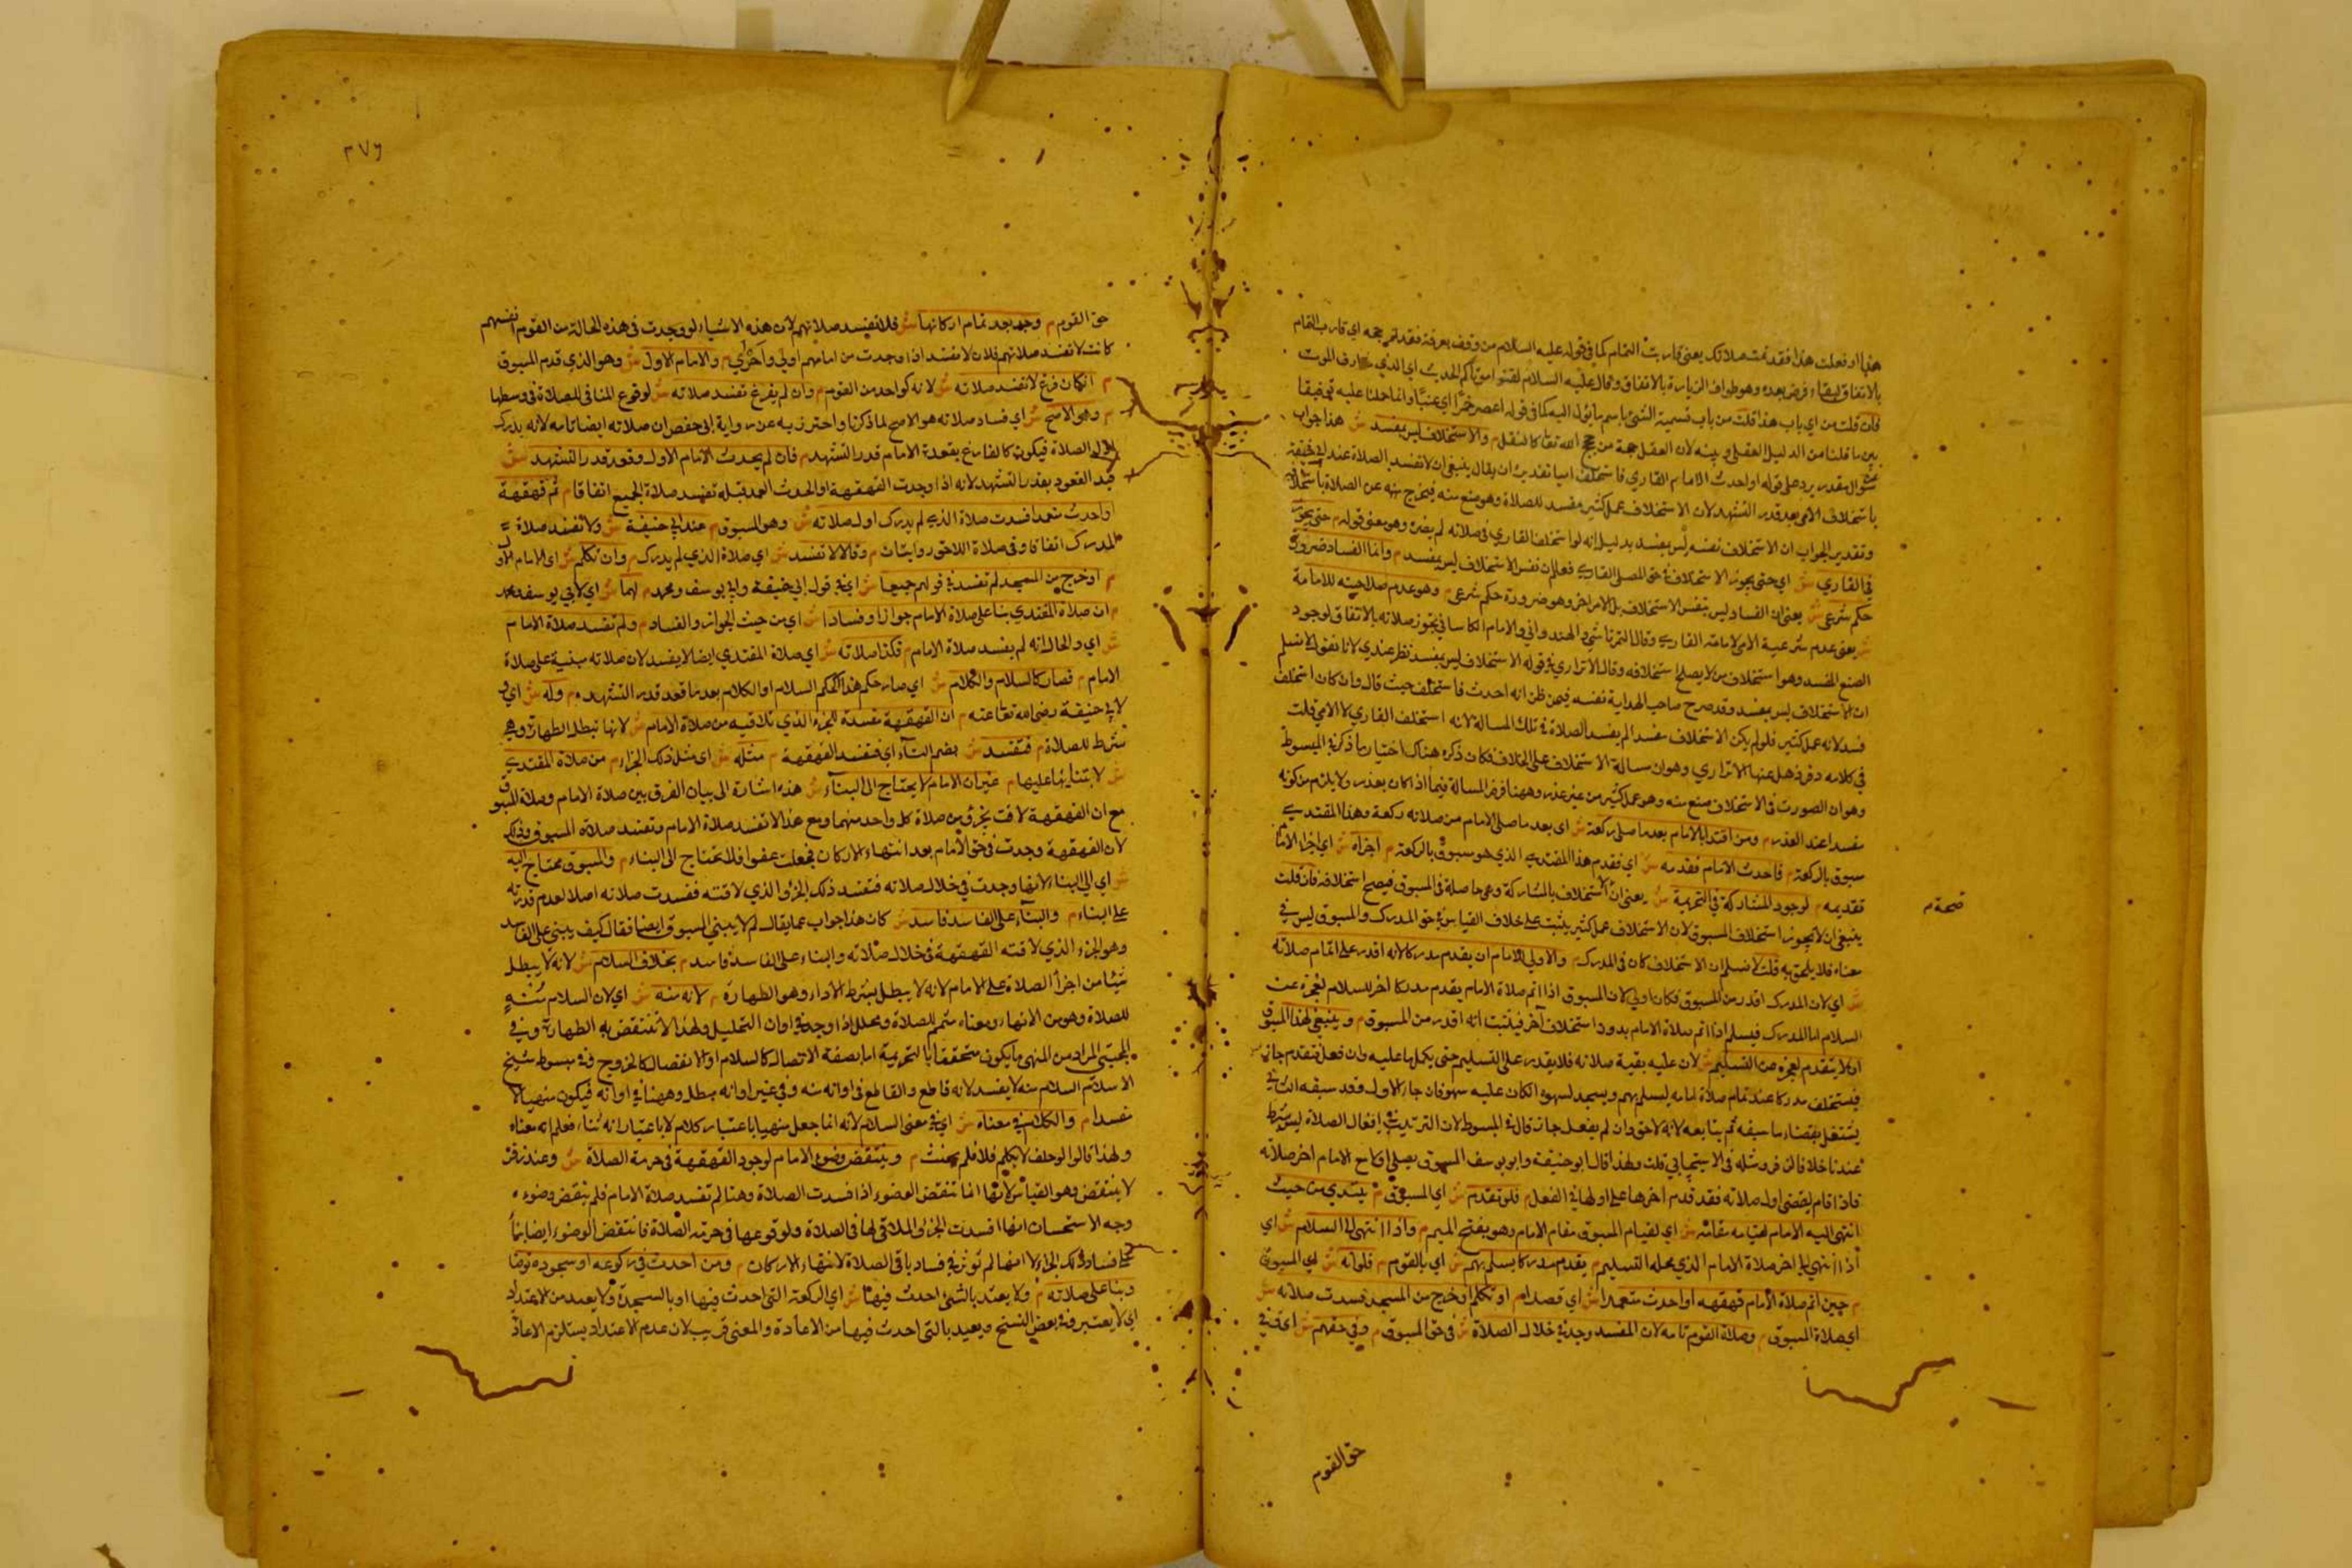 هذا او فعلت هذا فقد تمت صلاتك يعنى قاربت التمام كما فى قوله عليه السلام من وقف بعرفة فقد تم حجه اى قارب التمام
بالاتفاق لبقاء فرض بعده وهو طواف الزيارة بالاتفاق وقال عليه السلام لقنوا موتاكم الحديث اى الذي قارف الموت
فان قلت من اي باب هذا قلت من باب تسمية الشئ باسم ما يؤل اليه كما فى قوله اعصر خمرا اي عنبا وانما حملنا عليه توفيقا
بين ما قلنا من الدليل العقلى وبينه لان العقل حجة من حجج الله تعا كالنقل م والاستخلاف ليس بمفسد ش هذا جواب
عن سوال مقدر يرد على قوله او احدث الامام القاري فاستخلف اميا تقديره ان يقال ينبغى ان لا تفسد الصلاة عند ابى حنيفة
باستخلاف الامى بعد قدر التشهد لان الاستخلاف عمل كثير مفسد للصلاة وهو صنع منه فيخرج به عن الصلاة باستخلافه
وتقدير الجواب ان الاستخلاف نفسه ليس بمفسد بدليل انه لو استخلف القاري فى صلاته لم يضره وهو معنى قوله م حتى يجوز
في القاري ش اي حتى يجوز الاستخلاف في حق المصلى القاري فعلم ان نفس الاستخلاف ليس بمفسد م وانما الفساد ضرورة
حكم شرعى ش يعنى ان الفساد ليس بنفس الاستخلاف بل لامر اخر وهو ضرورة حكم شرعى م وهو عدم صلاحيته للامامة
ش يعنى عدم شرعية الامى لامامة القاري وقال التمرتاشي والهندواني والامام الكاساني تجوز صلاته بالاتفاق لوجود
الصنع المفسد وهو استخلاف من لا يصلح استخلافه وقال الاتراري في قوله الاستخلاف ليس بمفسد نظر عندي لانا نقول لا نسلم
ان الاستخلاف ليس بمفسد وقد صرح صاحب الهداية نفسه فيمن ظن انه احدث فاستخلف حيث قال وان كان استخلف
فسد لانه عمل كثير فلو لم يكن الاستخلاف مفسدا لم يفسد الصلاة فى تلك المسالة لانه استخلف القاري لا الامي قلت
فى كلامه دفر ذهل عنها الاتراري وهو ان مسالة الاستخلاف على الخلاف فكان ذكره هناك اختيار ما ذكر في المبسوط
وهو ان الصورت فى الاستخلاف صنع منه وهو عمل كثير من غير عذر وههنا فرض المسالة فيما اذا كان بعذر ولا يلزم من كونه
مفسدا عند العذر م ومن اقتدى بالامام بعد ما صلى ركعة ش اى بعد ما صلى الامام من صلاته ركعة وهذا المقتدي
سبوق بالركعة م فاحدث الامام فقدمه ش اي فقدم هذا المقتدي الذي هو مسبوق بالركعة م اجزاه ش اي اجزا الامام
تقديمه م لوجود المشاركة فى التحريمة ش يعنى ان الاستخلاف بالمشاركة وهى حاصلة فى المسبوق فيصح استخلافه فان قلت
صحة م
ينبغى ان لا يجوز استخلاف المسبوق لان الاستخلاف عمل كثير يثبت على خلاف القياس في حق المدرك والمسبوق ليس في
معناه فلا يلحق به قلت لا نسلم ان الاستخلاف كان فى المدرك م والاولى للامام ان يقدم مدركا لانه اقدر على اتمام صلاته
ش اي لان المدرك اقدر من المسبوق فكان اولى لان المسبوق اذا اتم صلاة الامام يقدم مدركا اخر للسلام لعجزه عن
السلام اما المدرك فيسلم اذا اتم صلاة الامام بدون استخلاف آخر فيثبت انه اقدر من المسبوق م وينبغى لهذا المسبوق
ان لا يتقدم لعجزه عن التسليم ش لان عليه بقية صلاته فلا يقدر على التسليم حتى يكمل ما عليه وان فعل فتقدم جاز
فيستخلف مدركا عند تمام صلاة امامه ليسلم بهم ويسجد لسهوه ان كان عليه سهو فان جاء الاول وقد سبقه الثاني
يشتغل بقضاء ما سبقه ثم يتابعه لانه لاحق وان لم يفعل جاز قال في المبسوط لان الترتيب في افعال الصلاة ليس بشرط
عندنا خلافا لزفر ومثله فى الاسبيجابي قلت ولهذا قال ابو حنيفة وابو يوسف المسبوق يصلي مع الامام اخر صلاته
فاذا قام يقضى اول صلاته فقد قدم اخرها على اولها في الفعل م فلو تقدم ش اي المسبوق م يبتدي من حيث
انتهى اليه الامام لقيامه مقامه ش اي لقيام المسبوق مقام الامام وهو بفتح الميم م واذا انتهى الى السلام ش اي
اذا انتهى الى اخر صلاة الامام الذي محله التسليم م يقدم مدركا يسلم بهم ش اي بالقوم م فلو انه ش اي المسبوق
م حين اتم صلاة الامام قهقهه او احدث متعمدا ش اي قصدا م او تكلم او خرج من المسجد فسدت صلاته ش
اي صلاة المسبوق م وصلاة القوم تامة لان المفسد وجد في خلال الصلاة ش فى حق المسبوق م وفي حقهم ش اي في
حق القوم
٢٧٦
حق القوم م وجد بعد تمام اركانها ش فلا تفسد صلاتهم لان هذه الاشياء لو وجدت فى هذه الحالة من القوم انفسهم
كانت لا تفسد صلاتهم فلان لا تفسد اذا وجدت من امامهم اولى وآحرى م والامام الاول ش وهو الذي قدم المسبوق
م ان كان فرغ لا تفسد صلاته ش لانه كواحد من القوم م وان لم يفرغ تفسد صلاته ش لوقوع المنافى للصلاة فى وسطها
م وهو الاصح ش اي فساد صلاته هو الاصح لما ذكرنا واحترز به عن رواية ابى حفص ان صلاته ايضا تامة لانه يدرك
اول الصلاة فيكون كالفارغ بقعدة الامام قدر التشهد م فان لم يحدث الامام الاول وقعد قدر التشهد ش
قيد القعود بقدر التشهد لانه اذا وجدت القهقهة او الحدث العمد قبله تفسد صلاة الجميع اتفاقا م ثم قهقهة
او احدث متعمدا فسدت صلاة الذي لم يدرك اول صلاته ش وهو المسبوق م عند ابى حنيفة ش ولا تفسد صلاة
المدرك اتفاقا وفى صلاة اللاحق روايتان م وقالا لا تفسد ش اي صلاة الذي لم يدرك م وان تكلم ش اى الامام الاول
م او خرج من المسجد لم تفسد في قولهم جميعا ش اي في قول ابى حنيفة وابى يوسف ومحمد م لهما ش اي لابي يوسف ومحمد
م ان صلاة المقتدي بناء على صلاة الامام جوازا وفسادا ش اي من حيث الجواز والفساد م ولم تفسد صلاة الامام
ش اي والحال انه لم يفسد صلاة الامام م فكذا صلاته ش اي صلاة المقتدي ايضا لا يفسد لان صلاته مبنية على صلاة
الامام م فصار كالسلام والكلام ش اي صار حكم هذا كحكم السلام او الكلام بعد ما قعد قدر التشهد م وله ش اي و
لابى حنيفة رضى الله تعا عنه م ان القهقهة مفسدة للجزء الذي تلاقيه من صلاة الامام ش لانها تبطل الطهارة وهي
شرط للصلاة م فتفسد ش بضم التاء اي فتفسد القهقهة م مثله ش اى مثل ذلك الجزء م من صلاة المقتدي
ش لابتنائها عليها م غير ان الامام لا يحتاج الى البناء ش هذه اشارة الى بيان الفرق بين صلاة الامام وصلاة المسبوق
مع ان القهقهة لاقت بجزؤ من صلاة كل واحد منهما ومع هذا لا تفسد صلاة الامام وتفسد صلاة المسبوق وذلك
لان القهقهة وجدت فى حق الامام بعد انتهاء الاركان فجعلت عفوا فلا يحتاج الى البناء م والمسبوق محتاج اليه
ش اي الى البناء لانها وجدت في خلال صلاته فتفسد ذلك الجزؤ الذي لاقته ففسدت صلاته اصلا لعدم قدرته
على البناء م والبناء على الفاسد فاسد ش كان هذا جواب عما يقال لم لا يبنى المسبوق ايضا فقال كيف يبنى على الفاسد
وهو الجزء الذي لاقته القهقهة فى خلال صلاته والبناء على الفاسد فاسد م بخلاف السلام ش لانه لا يبطل
شيئا من اجزأ الصلاة على الامام لانه لا يبطل شرط الاداء وهو الطهارة م لانه منه ش اي لان السلام منه
للصلاة وهو من الانهاء ومعناه متمم للصلاة ومحلل اذا وجد في اوان التحليل ولهذا لا تنتقض به الطهارة وفي
المجتبى المراد من المنهى ما يكون متحققا بالتحريمة اما بصفة الاتصال كالسلام او الانفصال كالخروج وفي مبسوط شيخ
الاسلام السلام منه لا يفسد لانه قاطع والقاطع فى اوانه منه وفي غير اوانه مبطل وههنا في اوانه فيكون منهيا لا
مفسدا م والكلام في معناه ش اي في معنى السلام لانه انما جعل منهيا باعتبار كلام لا باعتبار انه ثناء فعلم انه معناه
ولهذا قالوا لو حلف لا يكلم فلانا فسلم يحنث م وينتقض وضوء الامام لوجود القهقهة فى حرمة الصلاة ش وعند زفر
لا ينتقض وهو القياس لانها انما تنقض الوضوء اذا فسدت الصلاة وهنا لم تفسد صلاة الامام فلم ينتقض وضوءه
وجه الاستحسان انها افسدت الجزؤ الملاقى لها فى الصلاة ولوقوعها فى حرمة الصلاة فانتقض الوضوء ايضا بناء
على فساد ذلك الجزء الا انها لم تؤثر في فساد باقى الصلاة لانتهاء الاركان م ومن احدث فى ركوعه او سجوده توضأ
وبنا على صلاته م ولا يعتد بالتى احدث فيها ش اي الركعة التى احدث فيها او بالسجدة ولا يعيد من الاعتداد
اي لا يعتبر وفي بعض النسخ ويعيد بالتى احدث فيها من الاعادة والمعنى قريب لان عدم الاعتداد يستلزم الاعادة